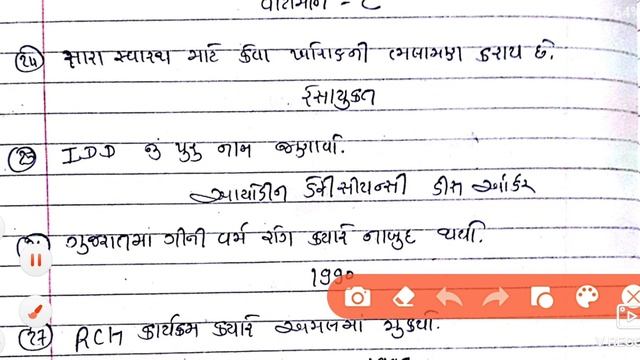 વિટામીન - C
(24) સારા સ્વાસ્થ્ય માટે કેવા ખોરાકની ભલામણ કરાય છે.
રેસાયુક્ત
(25) IDD નું પુરુ નામ જણાવો.
આયોડીન ડેફીસીયન્સી ડીસ ઓર્ડર
ગુજરાતમાં ગીની વર્મ રોગ ક્યારે નાબુદ થયો.
1990
(27) RCH કાર્યક્રમ ક્યારે અમલમાં મુકાયો.